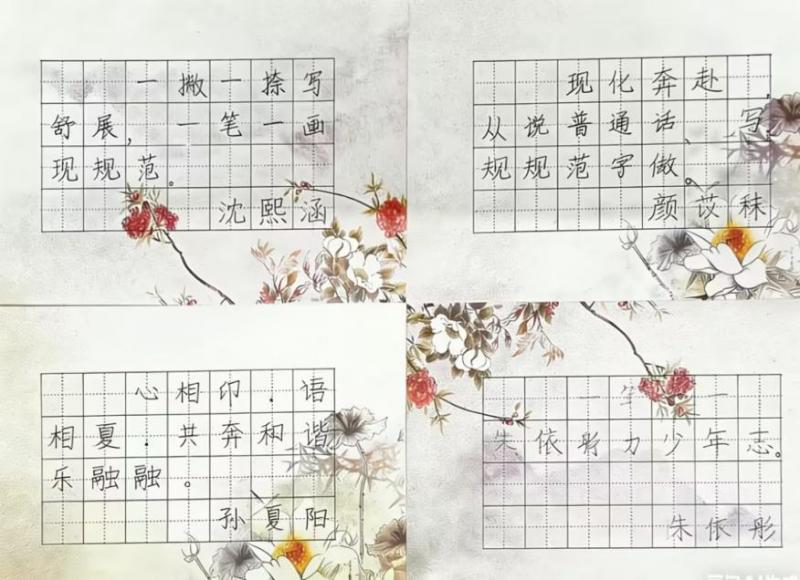 一撇一捺写
舒展，一笔一画
现规范。
沈熙涵
现化奔赴，
从说普通话、写
规规范字做。
颜苡秣
心相印．语
相夏．共奔和谐
乐融融。
孙夏阳
一笔一
朱依彤力少年志。
朱依彤